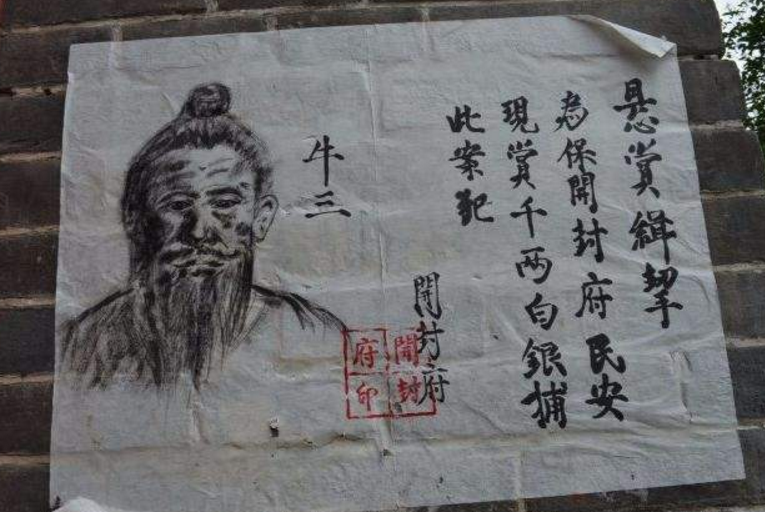 悬赏緝拏
为保開封府民安
現賞千两白銀捕
此案犯
開封府
開封府印
牛三